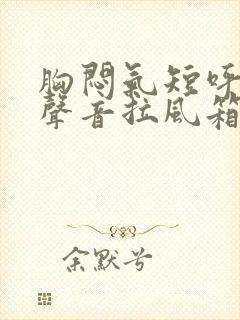 胸悶氣短呼
聲音拉風箱
余默兮